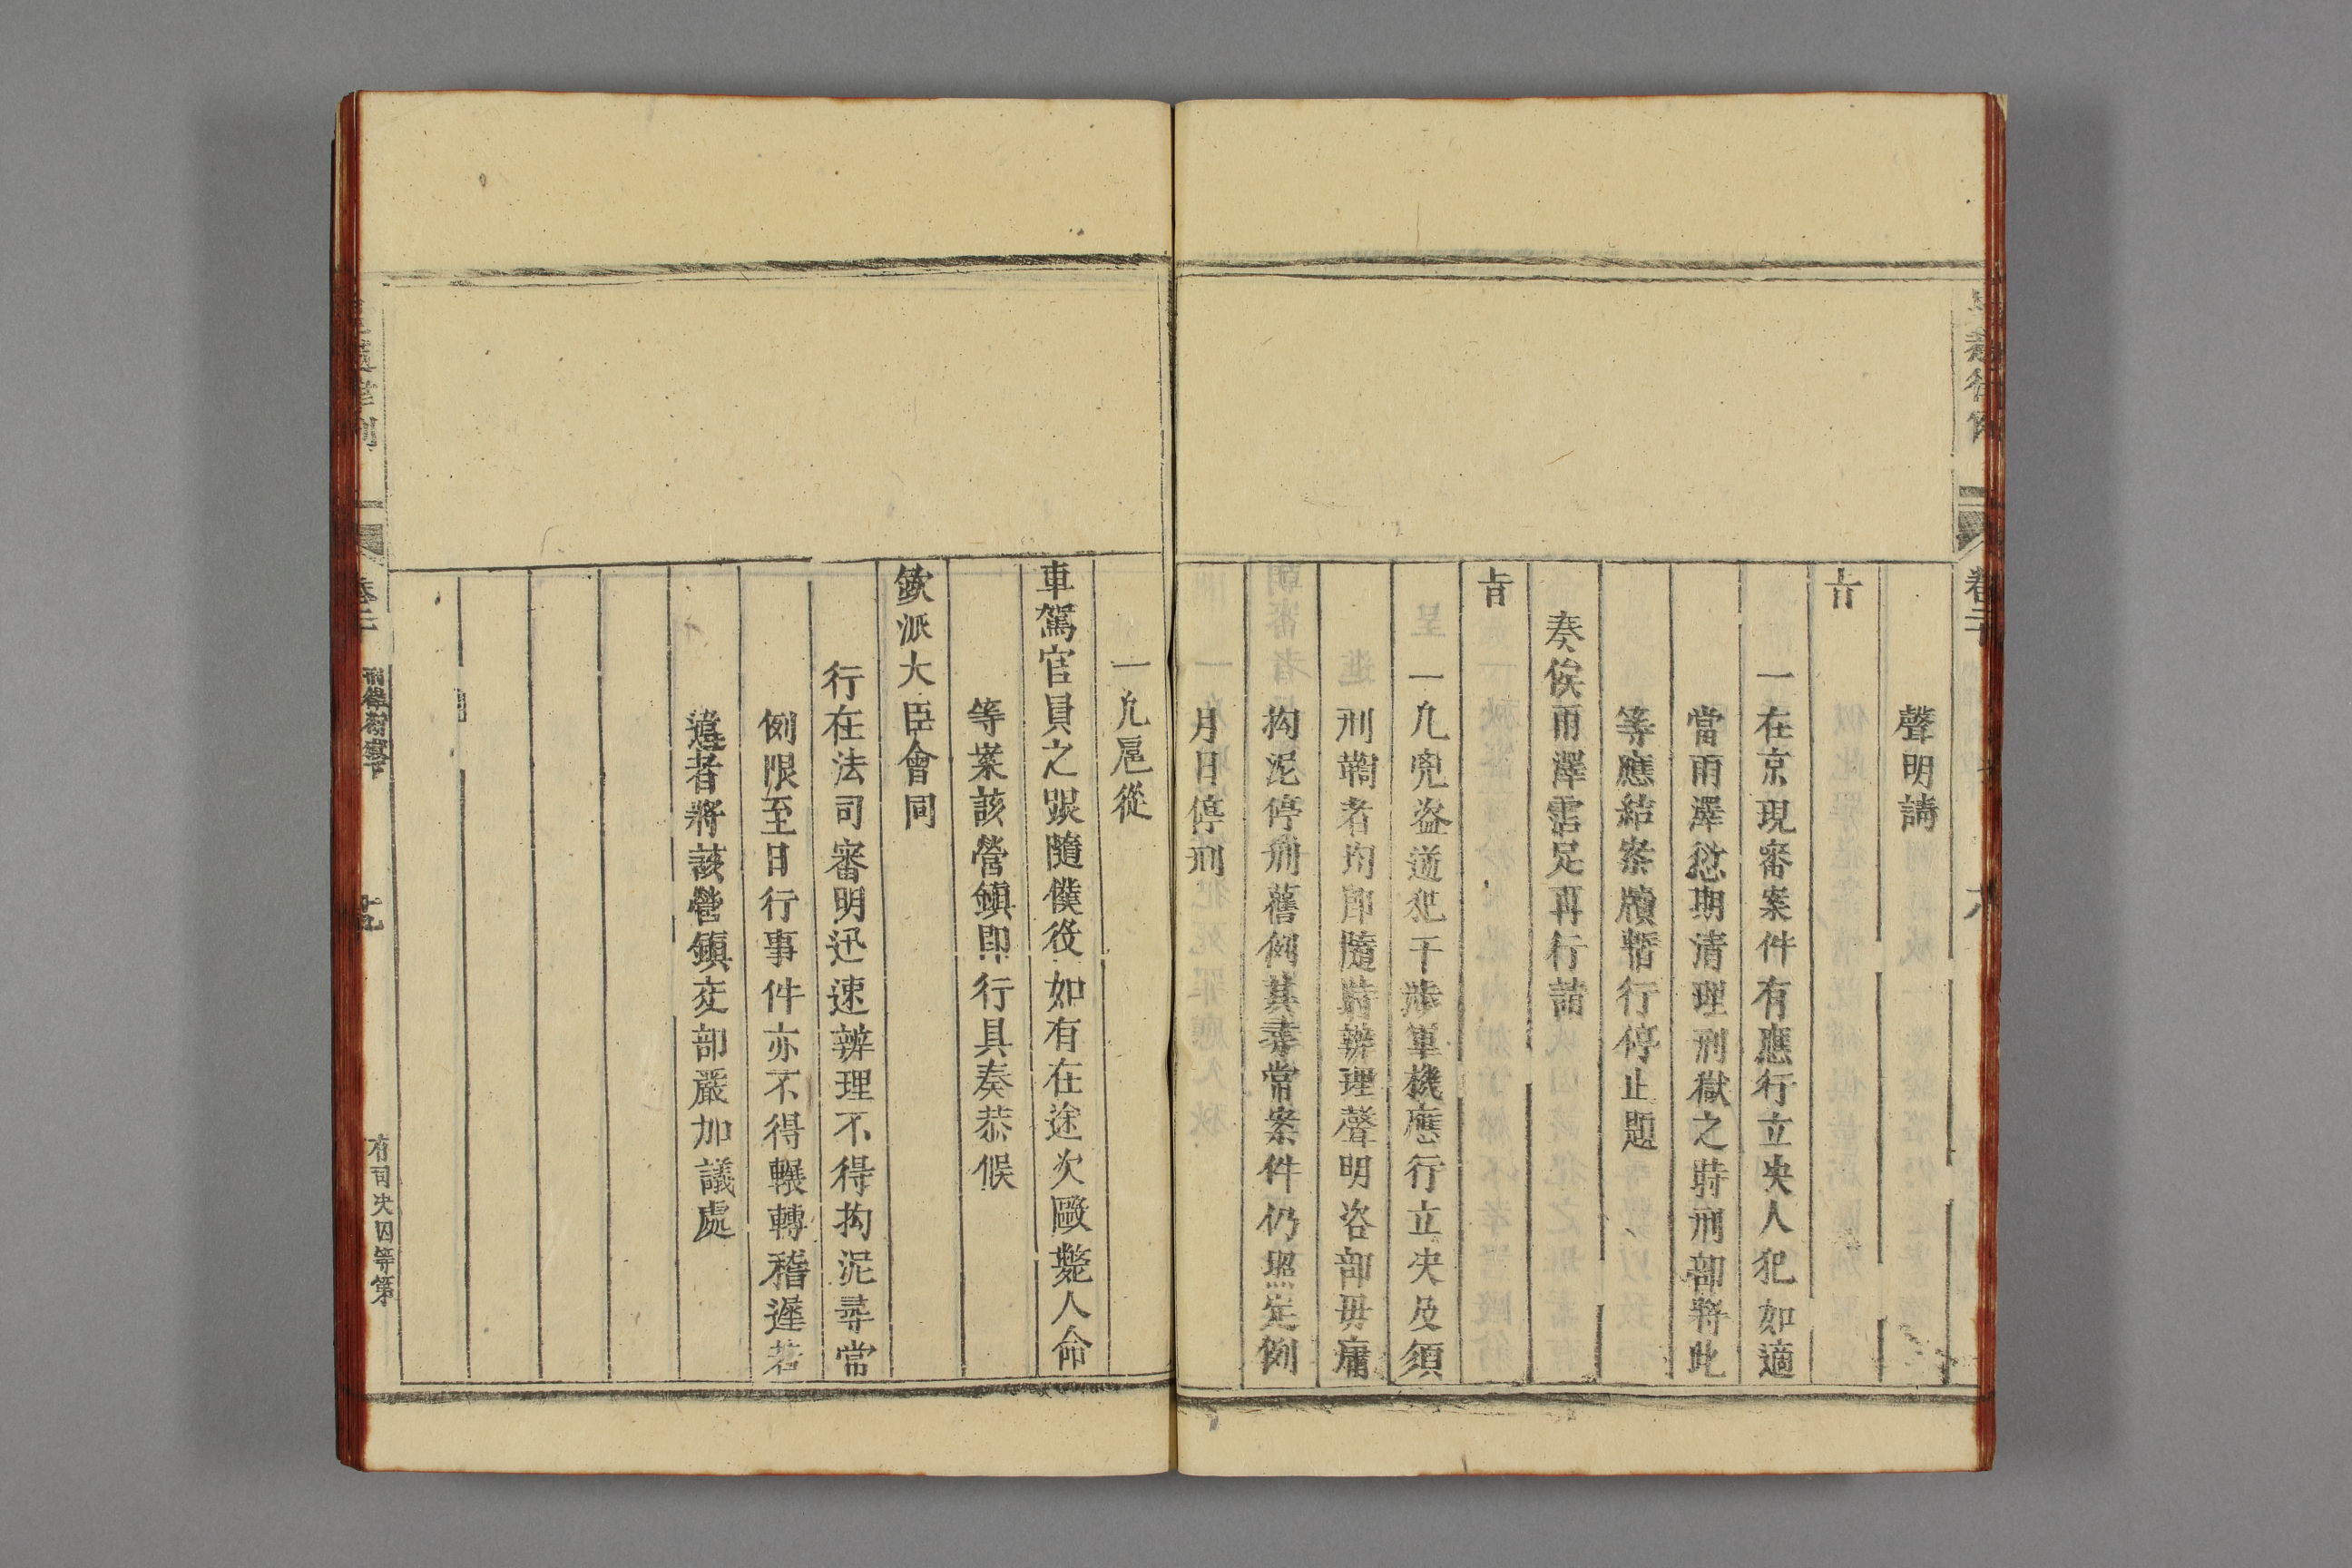 卷二
聲明請
旨
一在京現審案件有應行立决人犯如適
當雨澤愆期清理刑獄之時刑部將此
等應結案牘暫行停止題
奏俟雨澤霑足再行請
旨
一凡兇盗逆犯干涉軍機應行立决及須
刑鞫者均即隨時辦理聲明咨部毋庸
拘泥停刑舊例其尋常案件仍照定例
月日停刑
一凡扈從
車駕官員之跟隨僕役如有在途次毆斃人命
等案該營鎮即行具奏恭候
欽派大臣會同
行在法司審明迅速辦理不得拘泥尋常
例限至日行事件亦不得輾轉稽遲若
違者將該營鎮交部嚴加議處
有司决囚等第